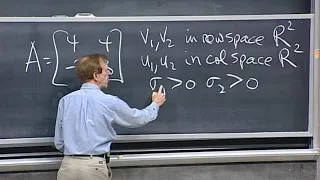 A = [4 4
v₁, v₂ in rowspace R²
u₁, u₂ in col space R²
σ > 0 σ₂ > 0